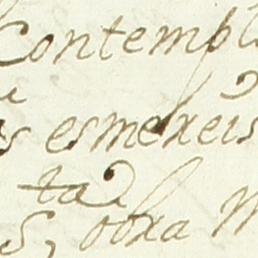 Contempl
s esmereis
ta
s, obra M